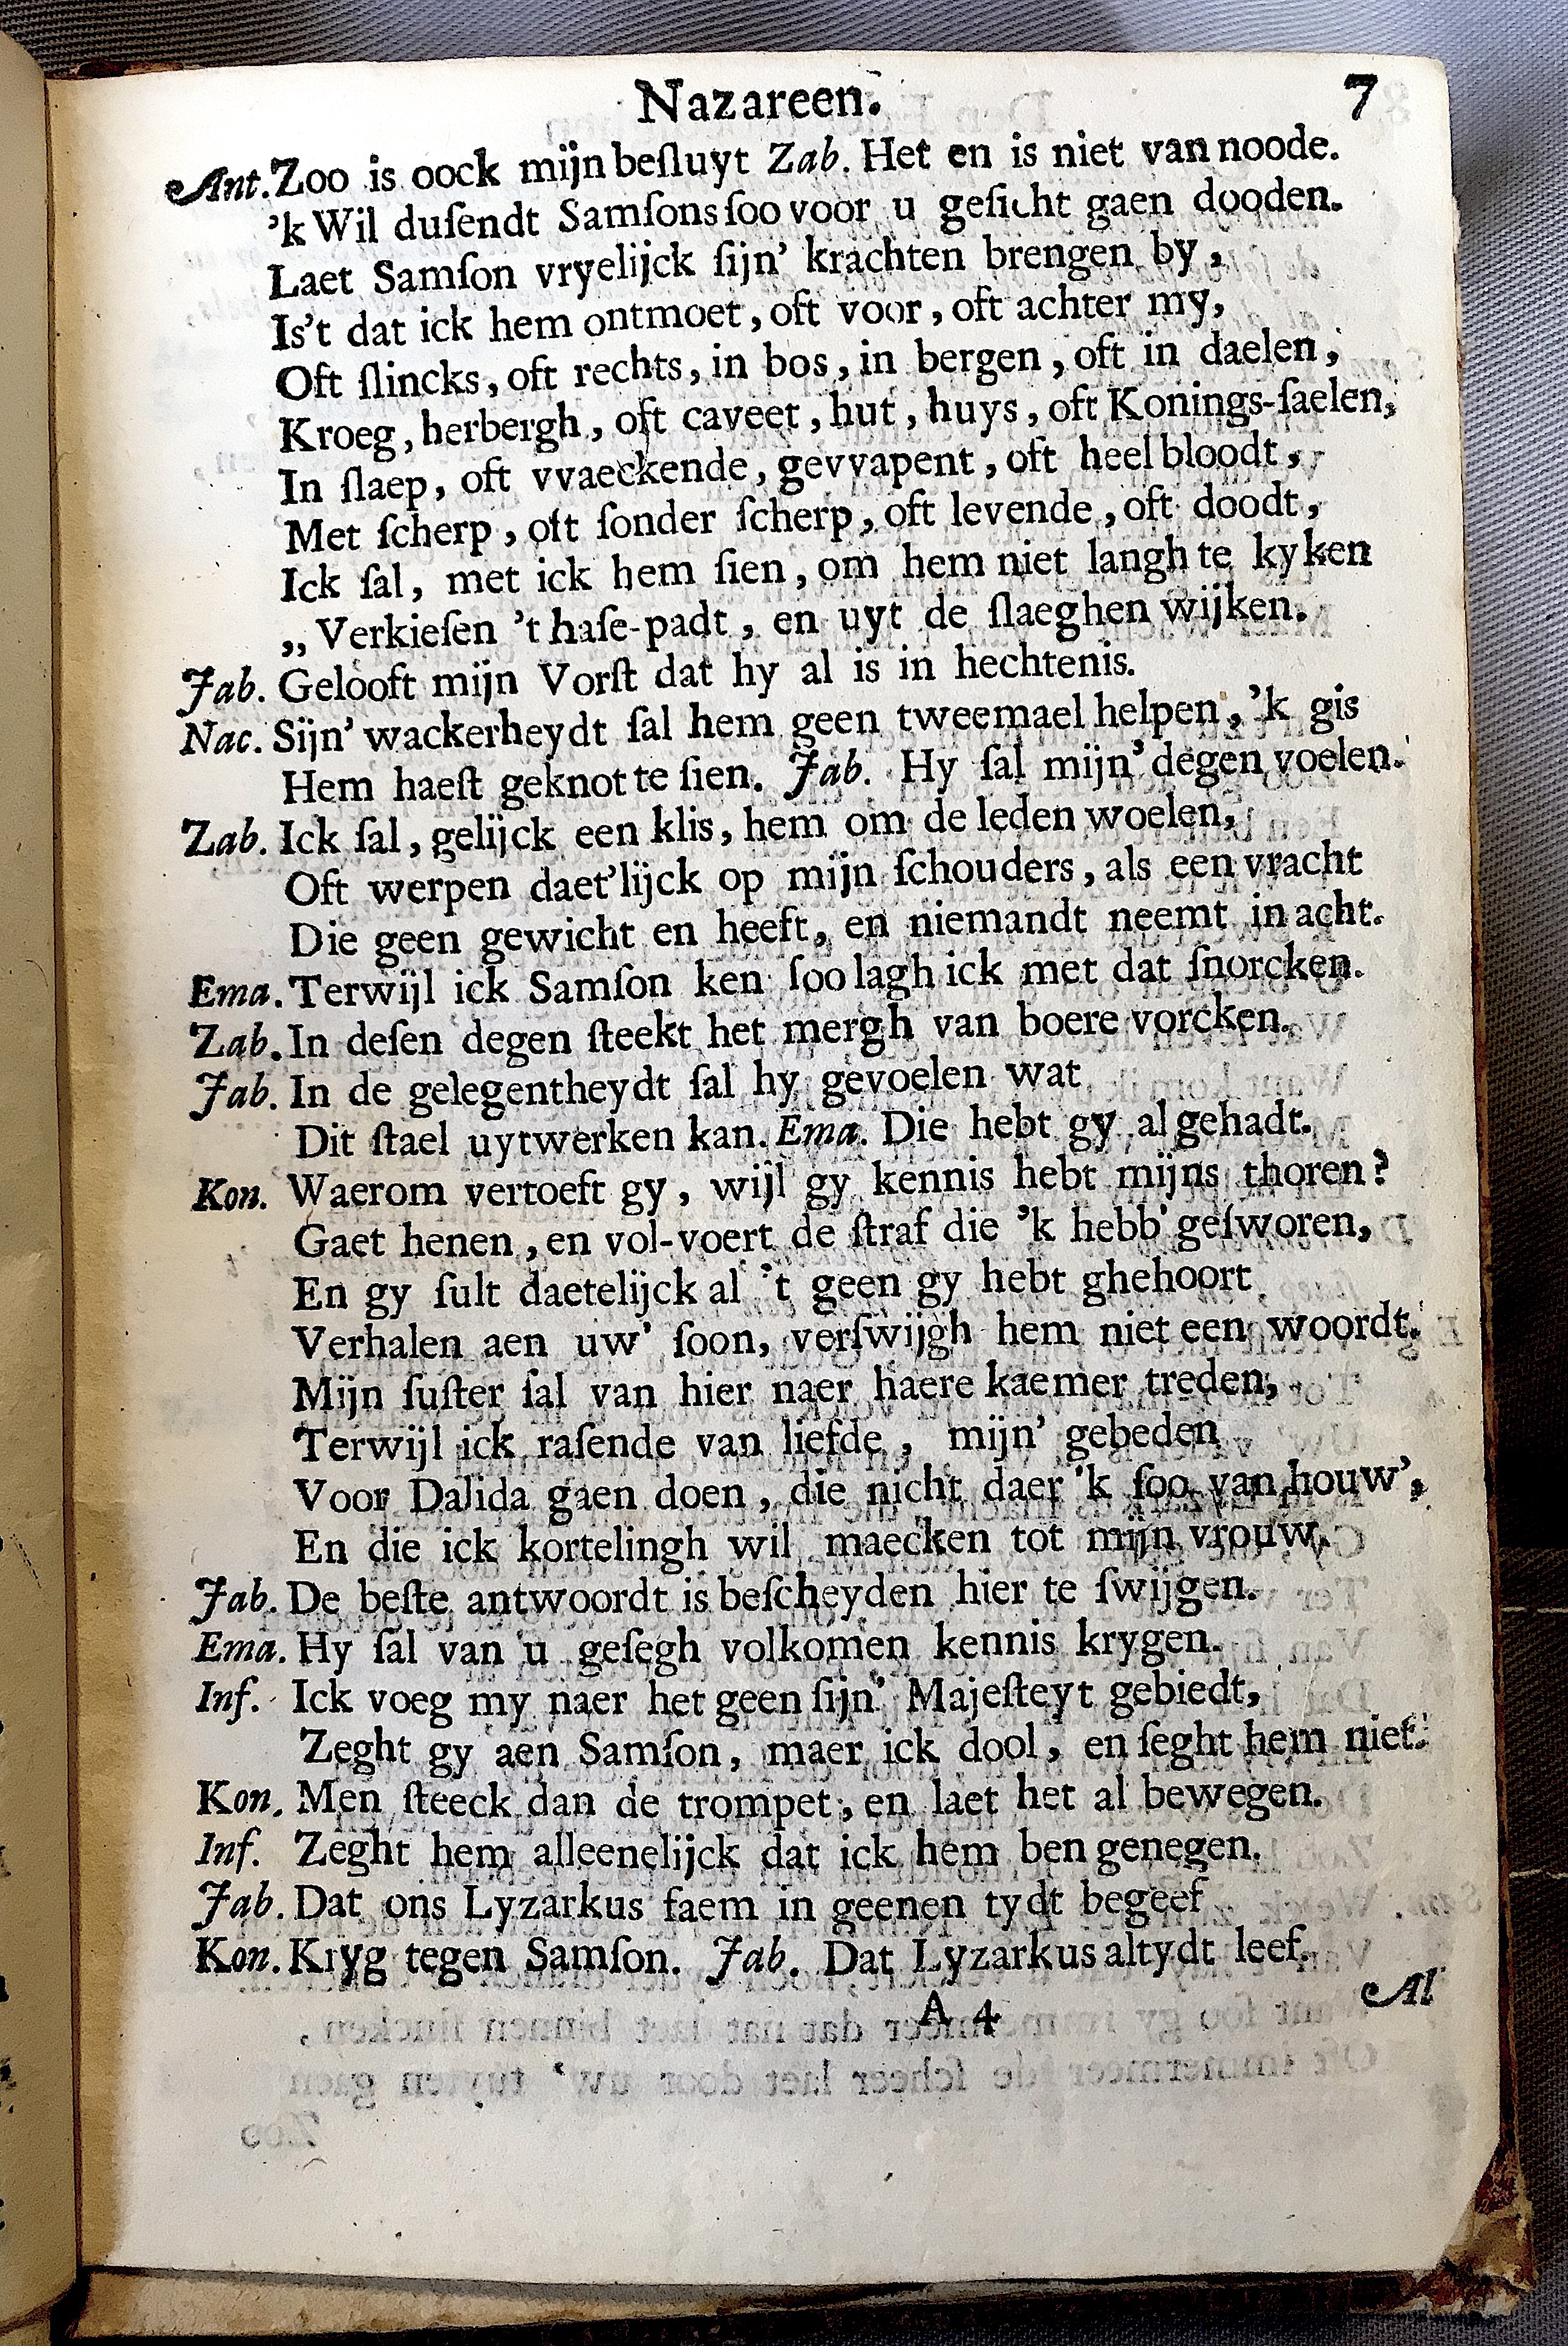 Nazareen. 7
Ant. Zoo is oock mijn beſluyt Zab. Het en is niet van noode.
'k Wil duſendt Samſons ſoo voor u geſicht gaen dooden.
Laet Samſon vryelijck ſijn' krachten brengen by,
Is't dat ick hem ontmoet, oft voor, oft achter my,
Oft ſlincks, oft rechts, in bos, in bergen, oft in daelen,
Kroeg, herbergh, oft caveet, hut, huys, oft Konings-ſaelen,
In ſlaep, oft vvaeckende, gevvapent, oft heel bloodt,
Met ſcherp, oft ſonder ſcherp, oft levende, oft doodt,
Ick ſal, met ick hem ſien, om hem niet langh te kyken
,, Verkieſen 't haſe-padt, en uyt de ſlaeghen wijken.
Jab. Gelooft mijn Vorſt dat hy al is in hechtenis.
Nac. Sijn' wackerheydt ſal hem geen tweemael helpen, 'k gis
Hem haeſt geknot te ſien. Jab. Hy ſal mijn' degen voelen.
Zab. Ick ſal, gelijck een klis, hem om de leden woelen,
Oft werpen daet'lijck op mijn ſchouders, als een vracht
Die geen gewicht en heeft, en niemandt neemt in acht.
Ema. Terwijl ick Samſon ken ſoo lagh ick met dat ſnorcken.
Zab. In deſen degen ſteekt het mergh van boere vorcken.
Jab. In de gelegentheydt ſal hy gevoelen wat
Dit ſtael uytwerken kan. Ema. Die hebt gy al gehadt.
Kon. Waerom vertoeft gy, wijl gy kennis hebt mijns thoren?
Gaet henen, en vol-voert de ſtraf die 'k hebb' geſworen,
En gy ſult daetelijck al 't geen gy hebt ghehoort
Verhalen aen uw' ſoon, verſwijgh hem niet een woordt.
Mijn ſuſter ſal van hier naer haere kaemer treden,
Terwijl ick raſende van liefde, mijn' gebeden
Voor Dalida gaen doen, die nicht daer 'k ſoo van houw',
En die ick kortelingh wil maecken tot mijn vrouw.
Jab. De beſte antwoordt is beſcheyden hier te ſwijgen.
Ema. Hy ſal van u geſegh volkomen kennis krygen.
Inf. Ick voeg my naer het geen ſijn' Majeſteyt gebiedt,
Zeght gy aen Samſon, maer ick dool, en ſeght hem niet.
Kon. Men ſteeck dan de trompet, en laet het al bewegen.
Inf. Zeght hem alleenelijck dat ick hem ben genegen.
Jab. Dat ons Lyzarkus faem in geenen tydt begeef
Kon. Kryg tegen Samſon. Jab. Dat Lyzarkus altydt leef.
A 4 Al